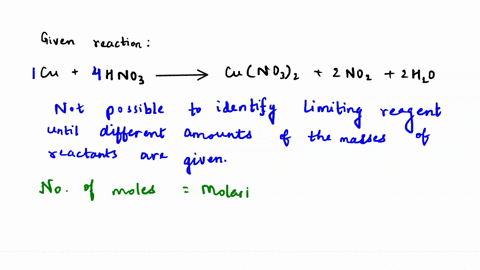 Given reaction:
1Cu + 4HNO3 ⟶ Cu(NO3)2 + 2NO2 + 2H2O
Not possible to identify limiting reagent
until different amounts of the masses of
reactants are given.
No. of moles = Molari